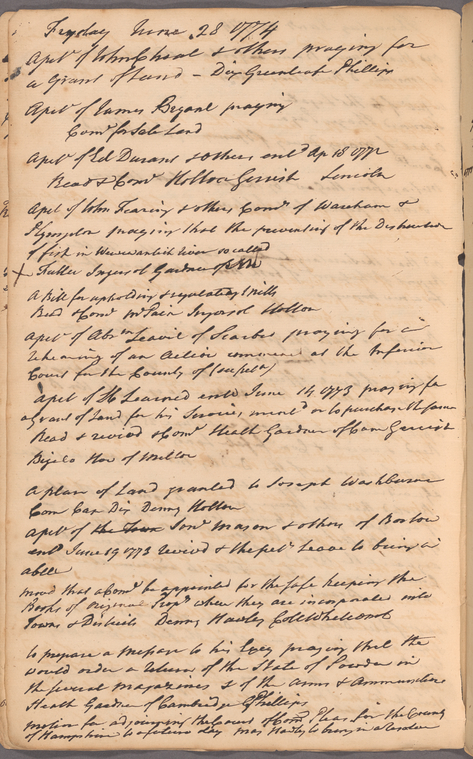 Fryday June 28 1774
A petn of John Cheat & others praying for
a Grant of Land - Dix Greenleaf Phillips
A petn of James Bryant praying
Comd for Sale Land
A petn of Ed Durant & others entd Ap 18 1772
Read & Comd Holton Gerrish Lincoln
A petn of John Fearing & others Comtee of Wareham &
Plympton praying that the preventing of the Destruction
of fish in Weweantick River so called
X Fuller Ingersol Gardner of
A Bill for upholding & regulating Mills
Read & Comd Ingersol Holton
A petn of Abrm Leavit of Scarbo praying for a
rehearing of an action commenced at the Inferior
Court for the County of
A petn of Learned entd June 14 1773 praying for
a Grant of Land for his Services, or to purchase the same
Read & revivd & Comd Heath Gardner of Cam Gerrish
Bigelo How of Milton
A plan of Land granted to Joseph Washburne
Com Dix Denny Holton
A petn of the Town Jonn Mason & others of Boston
entd June 19 1773 revivd & the petn Leave to bring in
a bill
movd that a Comtee be appointed for the safe keeping the
Books of original Proprs where they are incorporated into
Towns & Districts Denny Hawley Coll Whetcomb
to prepare a message to his Excy praying that he
would order a return of the State of Powder in
the several magazines & of the arms & Ammunition
Heath Gardner of Cambridge Phillips
motion for adjourning the Court of Comn Pleas for the County
of Hampshire to a future day Majr Hawley to bring in a